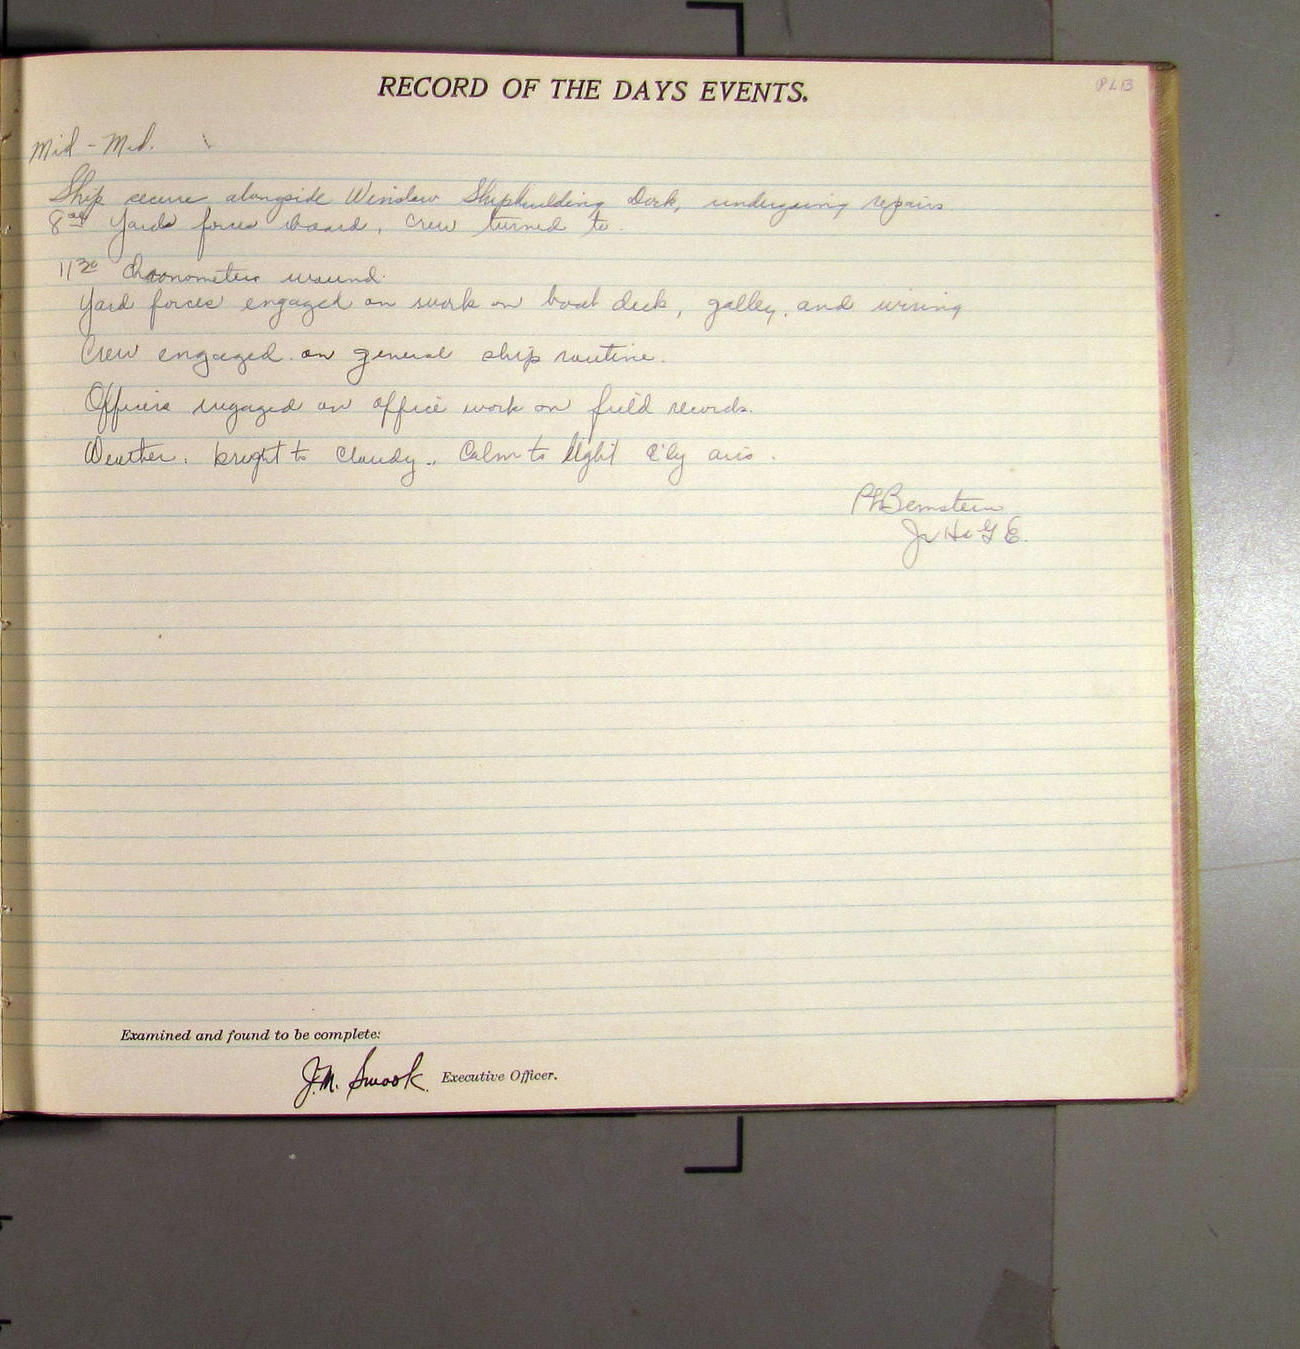 PLB
RECORD OF THE DAYS EVENTS.
Mid - Mid.
Ship secure alongside Winslow Shipbuilding Dock, undergoing repairs.
8 00 Yard forces aboard, crew turned to.
11 30 Chronometers wound.
Yard forces engaged on work on boat deck, galley, and wiring
Crew engaged on general ship routine.
Officers engaged on office work on field records.
Weather. bright to cloudy.. Calm to light E'ly airs.
PLBernstein
Jr H & G E.
Examined and found to be complete:
J.M. Smook Executive Officer.